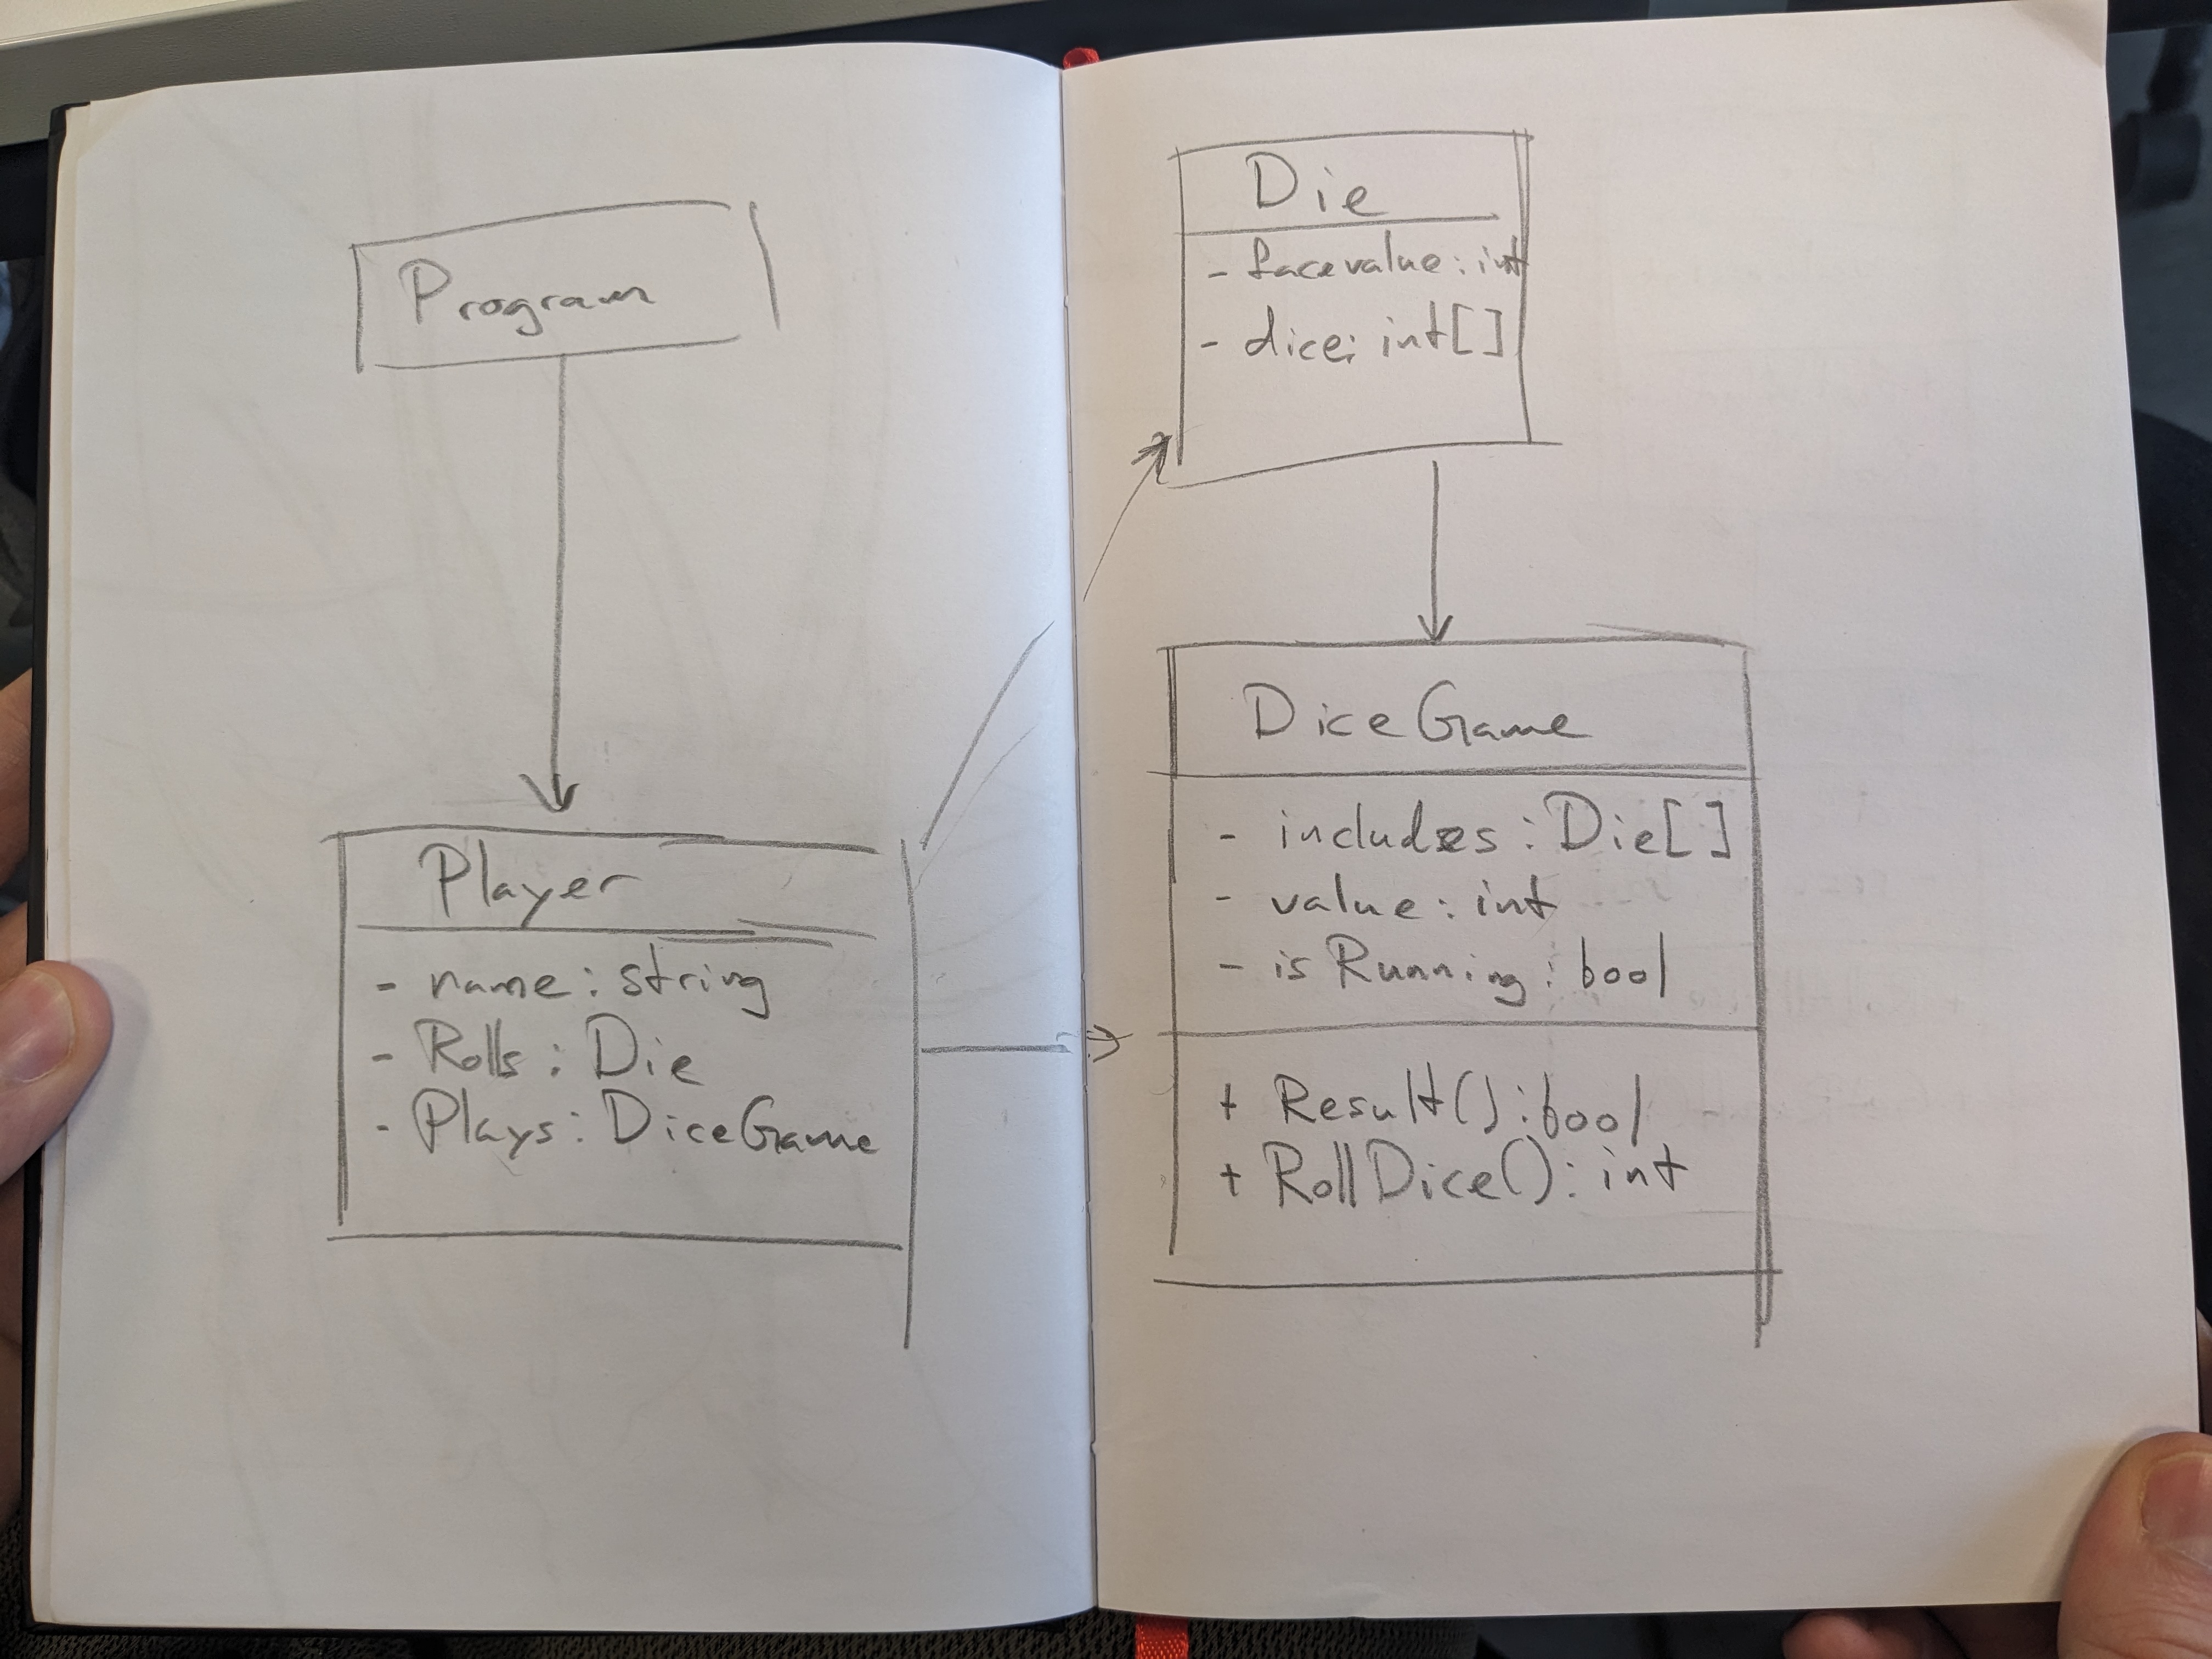 Program
Player
- name: string
- Rolls: Die
- Plays: DiceGame
Die
- facevalue: int
- dice: int[]
DiceGame
- includes: Die[]
- value: int
- isRunning: bool
+ Result(): bool
+ RollDice(): int